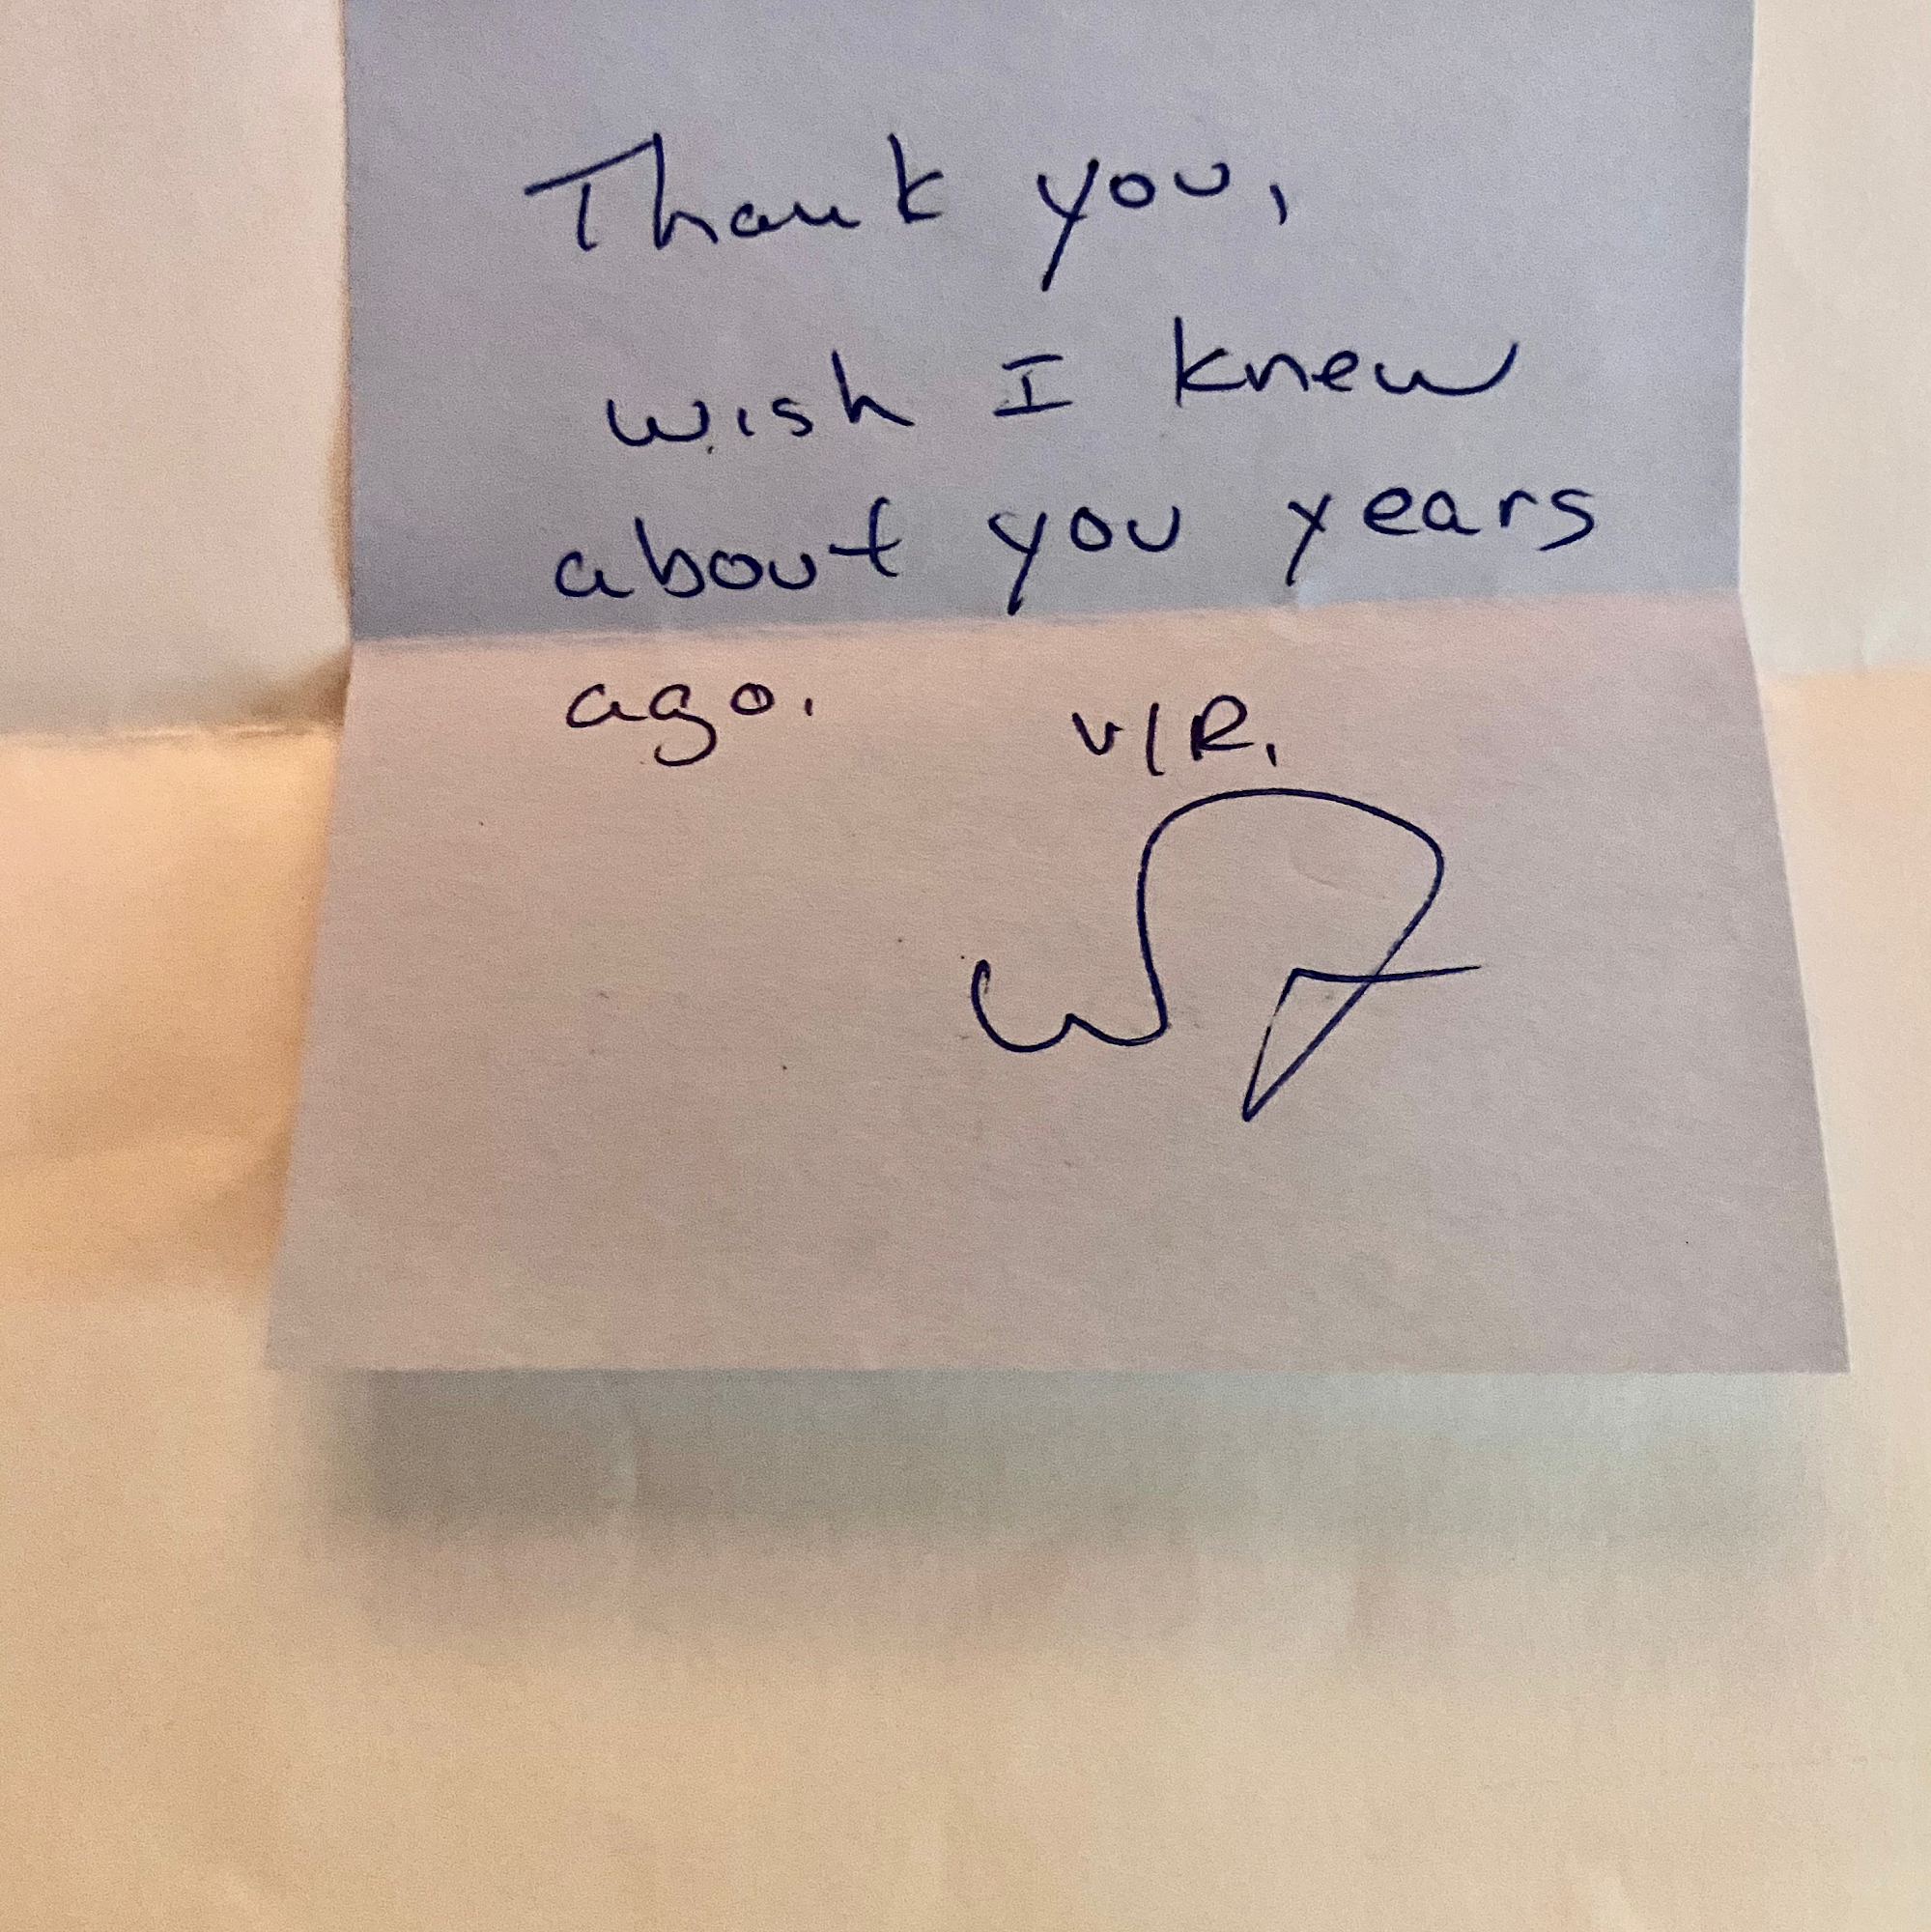 Thank you,
wish I knew
about you years
ago. V/R,